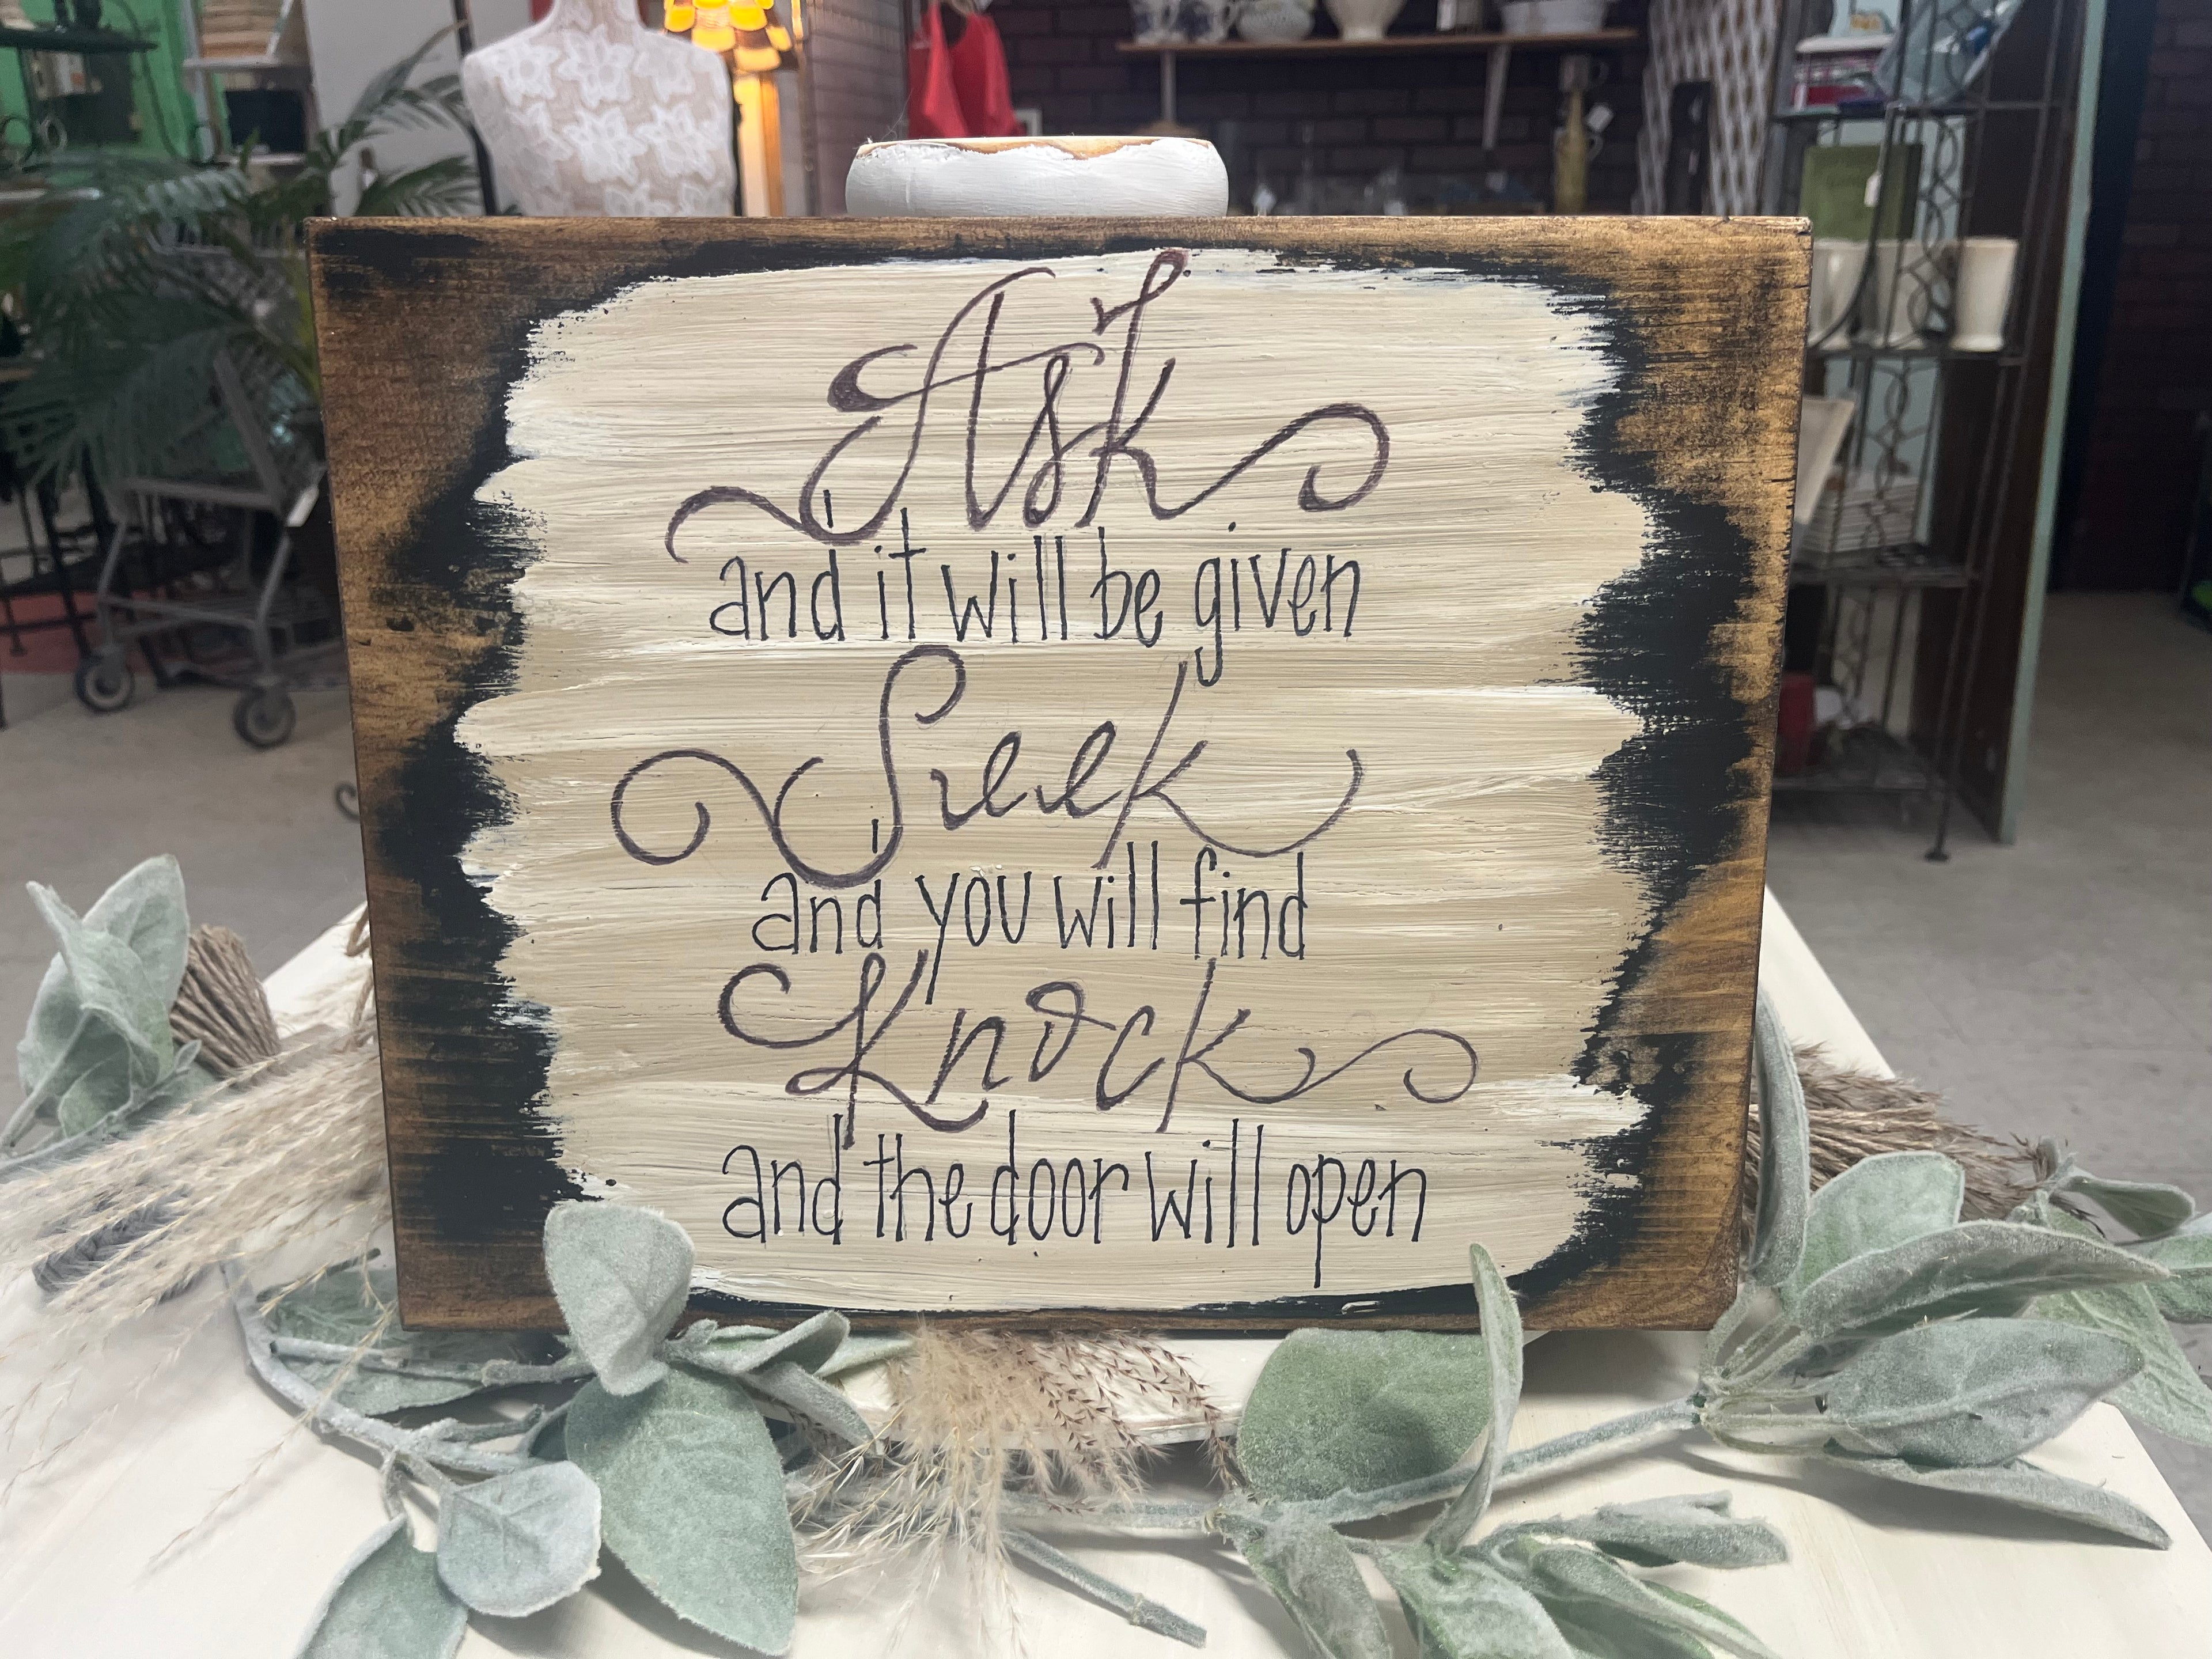 Ask
and it will be given
Seek
and you will find
Knock
and the door will open